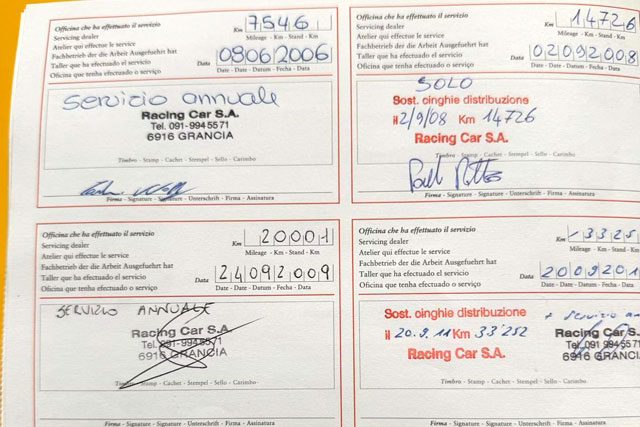 Officina che ha effettuato il servizio
Servicing dealer
Atelier qui effectue le service
Fachbetrieb der die Arbeit Ausgefuehrt hat
Taller que ha efectuado el servicio
Oficina que tenha efectuado o serviço
Km 7546
Mileage - Km - Stand - Km
Data 08062006
Date - Date - Datum - Fecha - Data
servizio annuale
Racing Car S.A.
Tel. 091-994 55 71
6916 GRANCIA
Timbro - Stamp - Cachet - Stempel - Sello - Carimbo
Firma - Signature - Signature - Unterschrift - Firma - Assinatura
Officina che ha effettuato il servizio
Servicing dealer
Atelier qui effectue le service
Fachbetrieb der die Arbeit Ausgefuehrt hat
Taller que ha efectuado el servicio
Oficina que tenha efectuado o serviço
Km 14726
Mileage - Km - Stand - Km
Data 02092008
Date - Date - Datum - Fecha - Data
SOLO
Sost. cinghie distribuzione
il 2/9/08 Km 14726
Racing Car S.A.
Timbro - Stamp - Cachet - Stempel - Sello - Carimbo
Firma - Signature - Signature - Unterschrift - Firma - Assinatura
Officina che ha effettuato il servizio
Servicing dealer
Atelier qui effectue le service
Fachbetrieb der die Arbeit Ausgefuehrt hat
Taller que ha efectuado el servicio
Oficina que tenha efectuado o serviço
Km 20001
Mileage - Km - Stand - Km
Data 24092009
Date - Date - Datum - Fecha - Data
SERVIZIO ANNUALE
Racing Car S.A.
Tel. 091-994 55 71
6916 GRANCIA
Timbro - Stamp - Cachet - Stempel - Sello - Carimbo
Firma - Signature - Signature - Unterschrift - Firma - Assinatura
Officina che ha effettuato il servizio
Servicing dealer
Atelier qui effectue le service
Fachbetrieb der die Arbeit Ausgefuehrt hat
Taller que ha efectuado el servicio
Oficina que tenha efectuado o serviço
Km 3325
Mileage - Km - Stand - Km
Data 2009201
Date - Date - Datum - Fecha - Data
+ servizio an
Sost. cinghie distribuzione
il 20.9.11 Km 33'252
Racing Car S.A.
Racing Car S.A.
Tel. 091-994 55 71
6916 GRANCI
Timbro - Stamp - Cachet - Stempel - Sello - Carimbo
Firma - Signature - Signature - Unterschrift - Firma - Assinatura